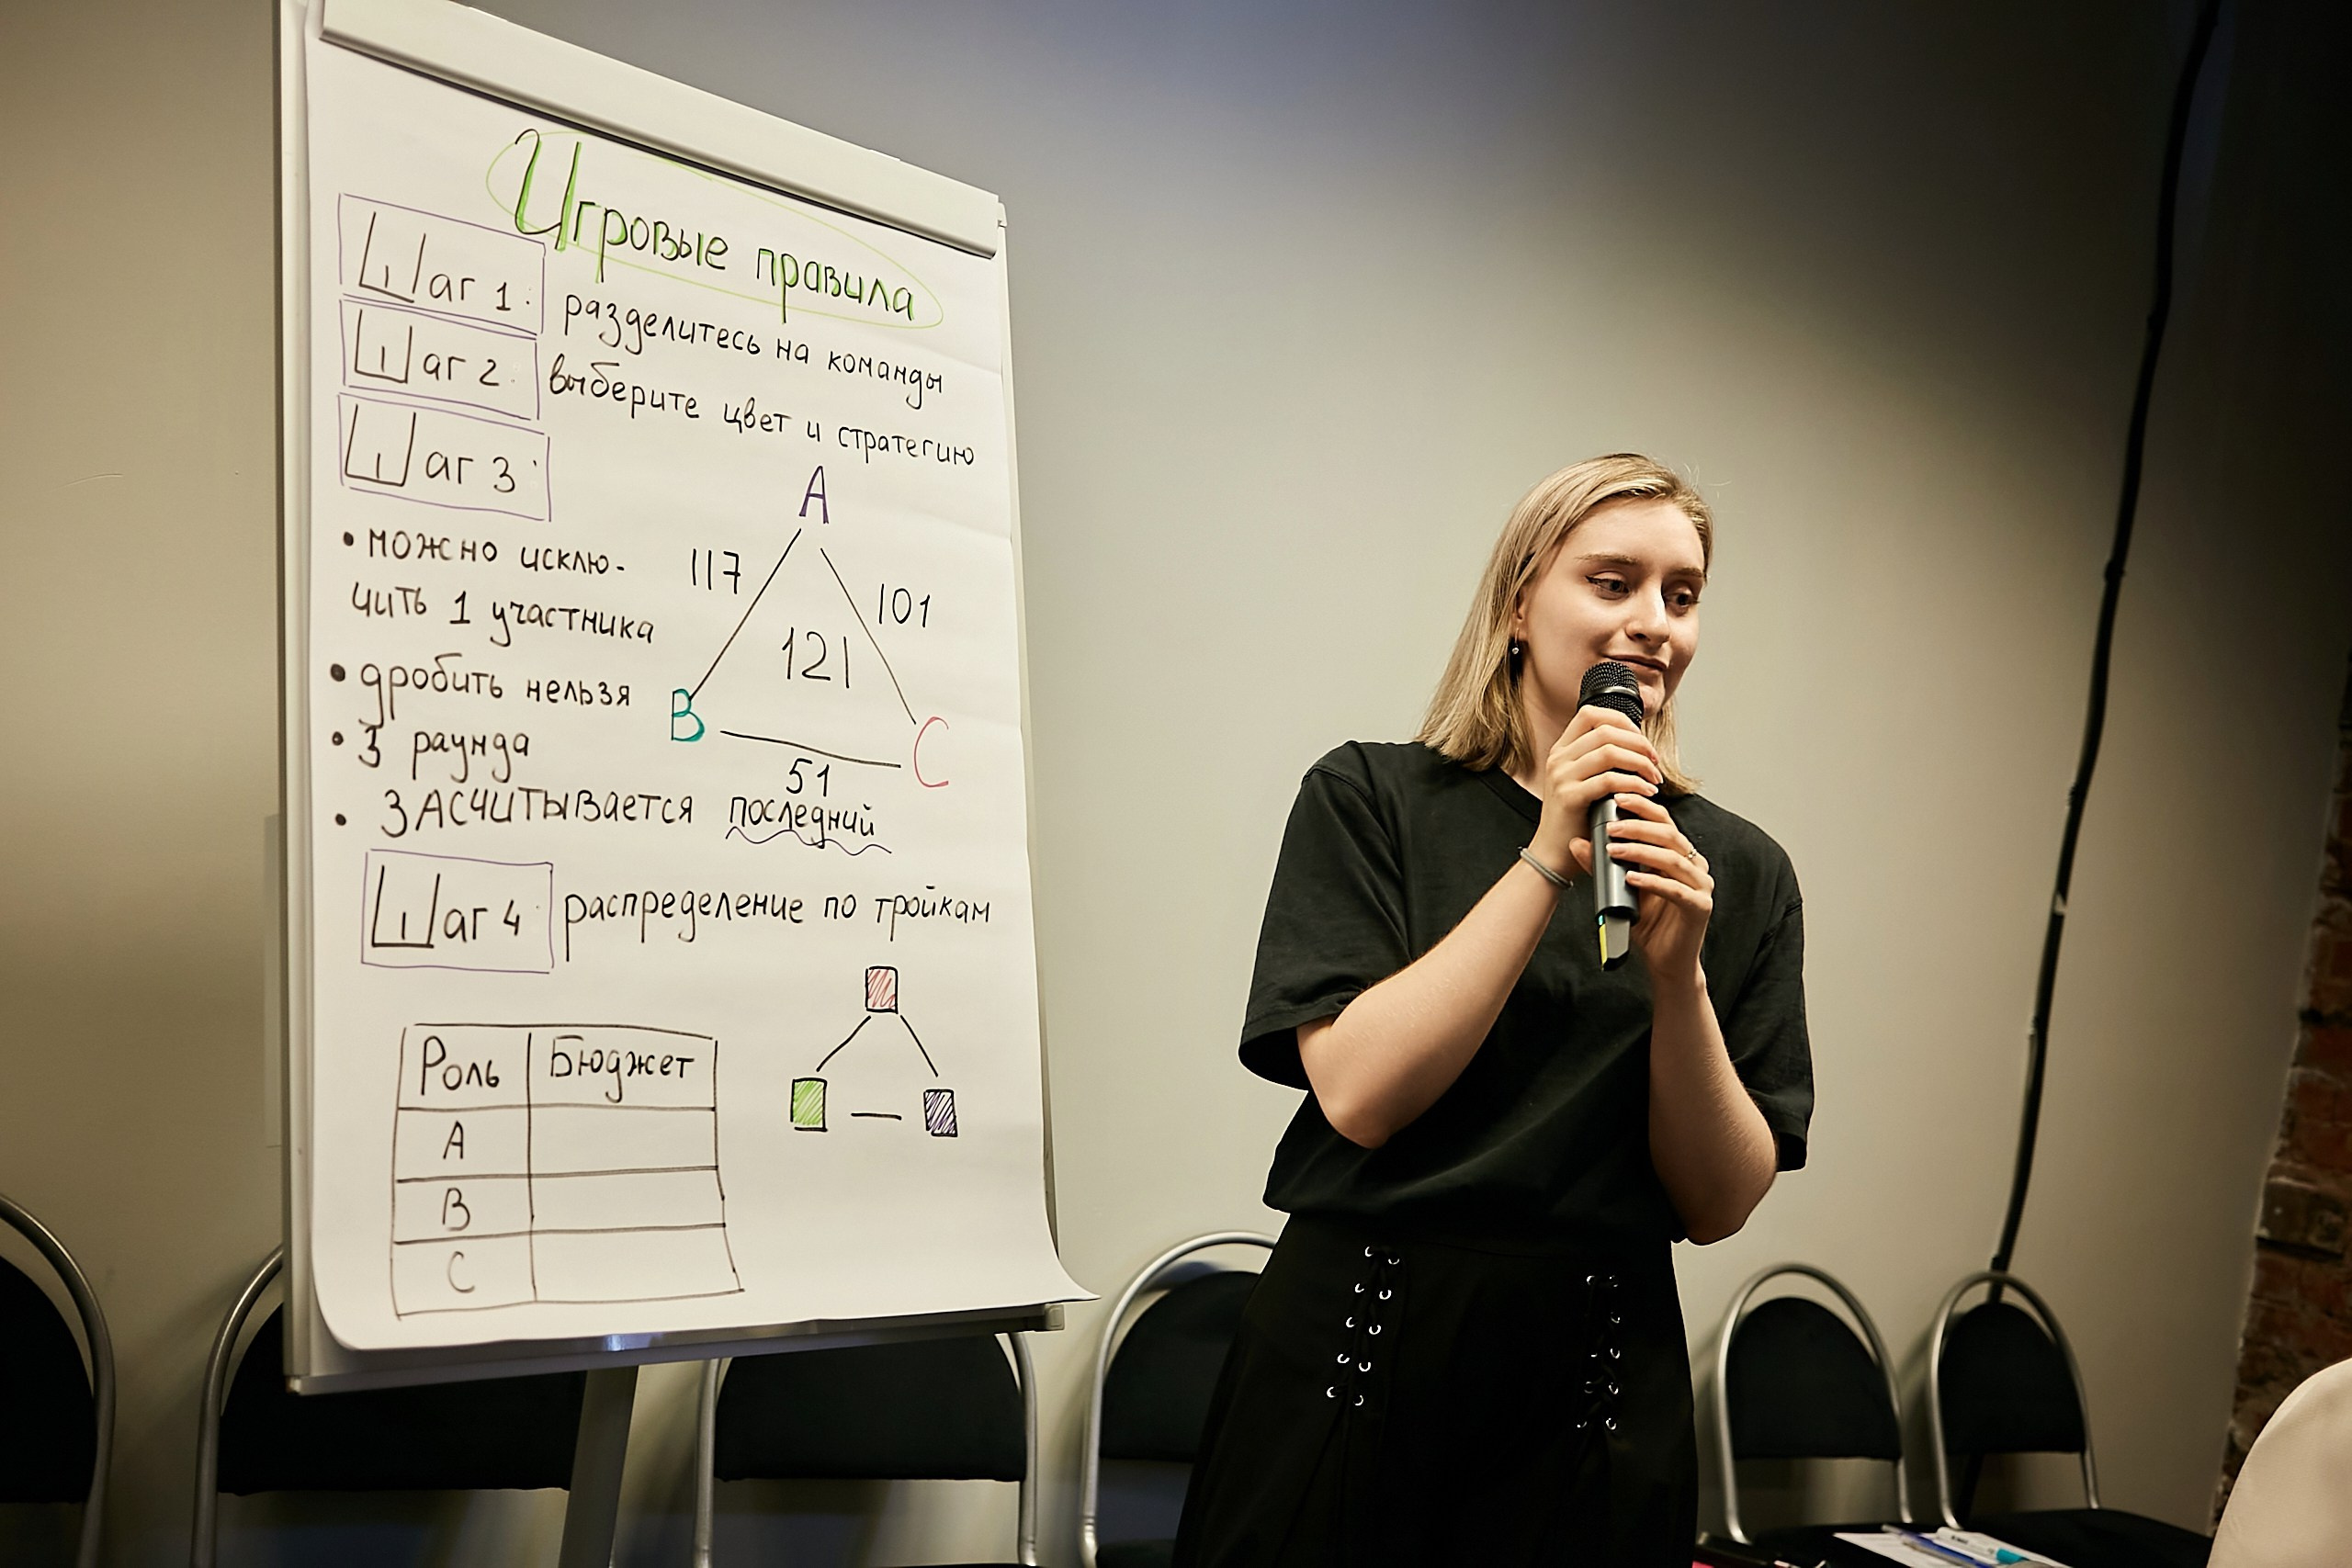 Игровые правила
Шаг 1: разделитесь на команды
Шаг 2: выберите цвет и стратегию
Шаг 3:
• можно исклю-
чить 1 участника
• дробить нельзя
• 3 раунда
• ЗАСЧИТЫВАЕТСЯ последний
A
117
101
121
B
C
51
Шаг 4: распределение по тройкам
Роль Бюджет
A
B
C